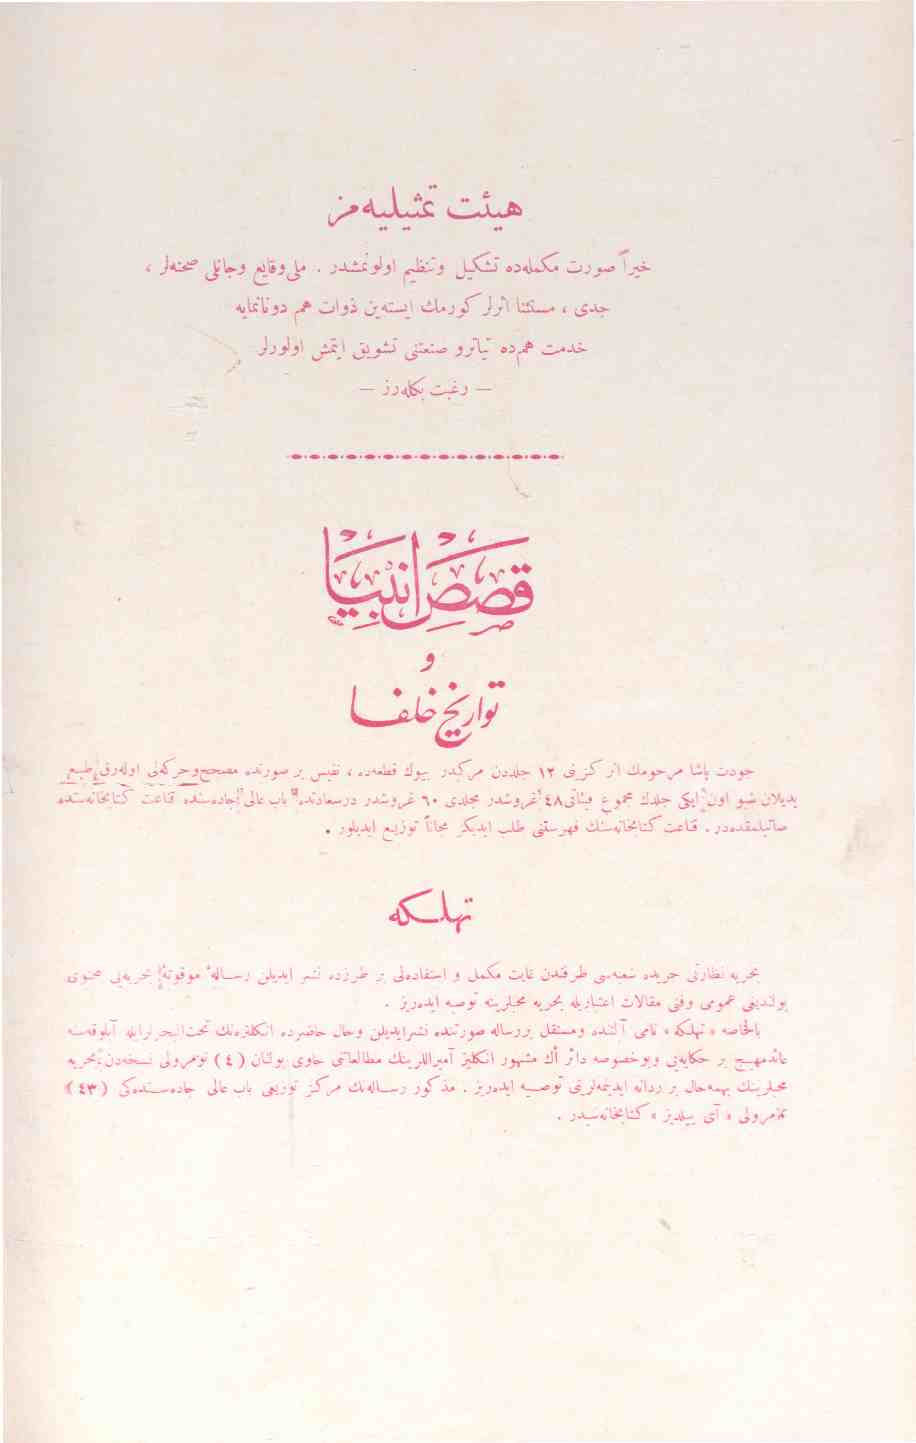 هیئت تمثیلیه‌مز
خیراً صورت مکمله‌ده تشکیل وتنظیم اولونمشدر . ملی وقایع وجانلی صحنه‌لر ،
جدی ، مستثنا اثرلر کورمك ایسته‌ین ذوات هم دونانمایه
خدمت هم‌ده تیاترو صنعتنی تشویق ایتمش اولورلر
— رغبت بکله‌رز —
قصص انبیا
و
تواریخ خلفا
جودت پاشا مرحومك اثر کزینی ١٢ جلددن مرکبدر بیوك قطعه‌ده ، نفیس بر صورتده مصحح وحرکه‌لی اوله‌رق طبع
ایدیلان شبو اون ایکی جلدك مجموع فیئاتی ٤٨ غروشدر مجلدی ٦٠ غروشدر درسعادتده باب عالی جاده‌سنده قناعت کتابخانه‌سنده
صاتیلمقده‌در . قناعت کتابخانه‌سنك فهرستنی طلب ایدیکز مجاناً توزیع ایدیلور .
تهلکه
بحریه نظارتی جریده شعبه‌سی طرفندن غایت مکمل و استفاده‌لی بر طرزده نشر ایدیلن رساله‌ٔ موقوتهٔ بحریه‌یی محتوی
بولندیغی عمومی وفنی مقالات اعتباریله بحریه محبلرینه توصیه ایده‌ریز .
بالخاصه « تهلکه » نامی آلتنده ومستقل بررساله صورتنده نشرایدیلن وحال حاضرده انکلتره‌نك تحت‌البحرلرایله آبلوقه‌سنه
عائدمهیج بر حکایه‌یی وبوخصوصه دائر اك مشهور انکلیز آمیراللرینك مطالعاتنی حاوی بولنان ( ٤ ) نومرولی نسخه‌دن بحریه
محبلرینك بهمه‌حال بر ردانه ایدینمه‌لرینی توصیه ایده‌ریز . مذکور رساله‌نك مرکز توزیعی باب عالی جاده‌سنده‌کی ( ٤٣ )
نمرولی « آی ییلدیز » کتابخانه‌سیدر .